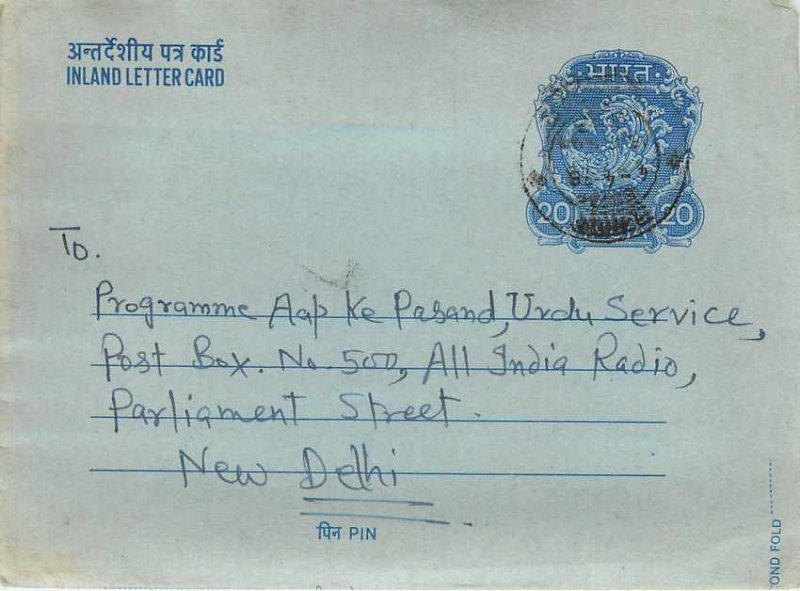 अन्तर्देशीय पत्र कार्ड
INLAND LETTER CARD
भारत
20 20
To.
Programme Aap Ke Pasand, Urdu Service,
Post Box. No. 500, All India Radio,
Parliament Street.
New Delhi
पिन PIN
OND FOLD